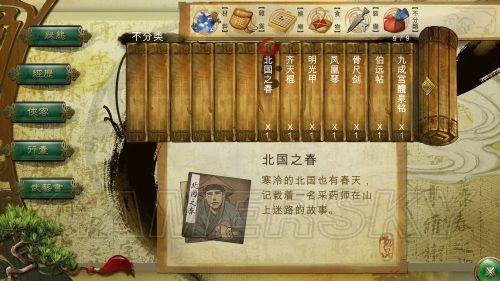 狀態
經歷
俠客
行囊
武藝書
不分类
不分類
9 / 9
北国之春
X
1
齐天棍
X
1
明光甲
X
1
凤凰琴
X
1
骨尺剑
X
1
伯远帖
X
1
九成宫醴泉铭
X
1
北国之春
北国之春
寒冷的北国也有春天，
记载着一名采药师在山
上迷路的故事。
GAMERSKY